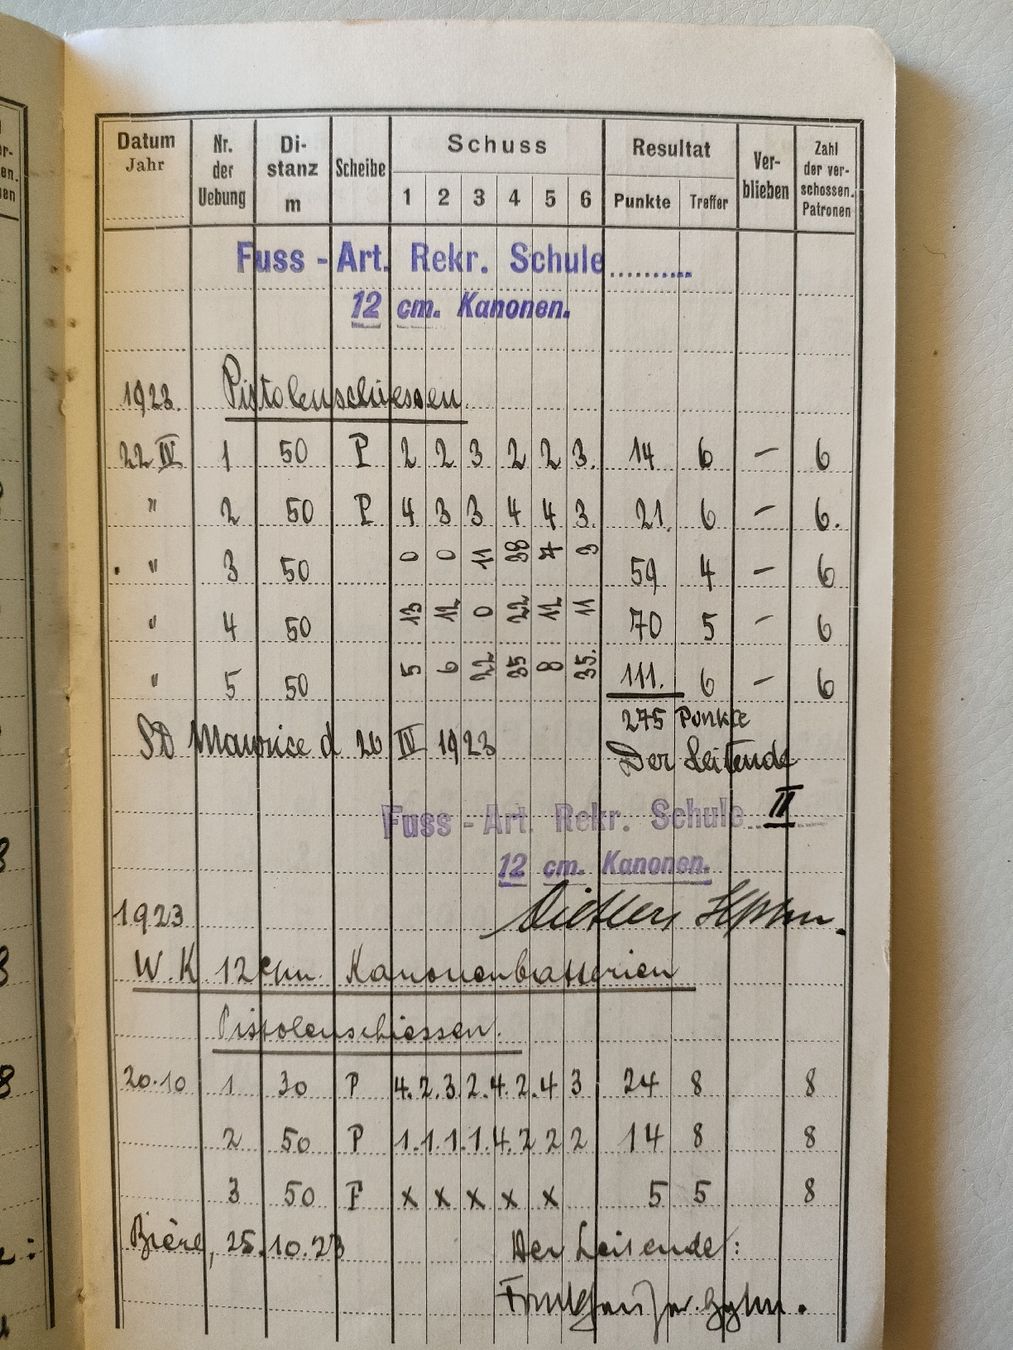 Datum Nr. Di- Scheibe Schuss Resultat Ver- Zahl
Jahr der stanz blieben der ver-
Uebung m 1 2 3 4 5 6 Punkte Treffer schossen. Patronen
Fuss - Art. Rekr. Schule ..........
12 cm. Kanonen.
1923. Pistolenschiessen.
22 IV 1 50 P 2 2 3 2 2 3. 14 6 — 6
" 2 50 P 4 3 3 4 4 3. 21 6 — 6.
" 3 50 0 0 11 38 7 3 59 4 — 6
" 4 50 13 12 0 22 12 11 70 5 — 6
" 5 50 5 6 22 35 8 35. 111. 6 — 6
275 Punkte
Maurice d 26 IV 1923 Der Leitende
Fuss - Art. Rekr. Schule II
12 cm. Kanonen.
1923
W.K 12 Kanonenbatterien
Pistolenschiessen.
20.10 1 30 P 4. 2. 3. 2. 4. 2. 4 3 24 8 8
2 50 P 1. 1. 1. 1. 4. 2 2 2 14 8 8
3 50 F x x x x x 5 5 8
Bière, 25.10.23 Der Leitende: